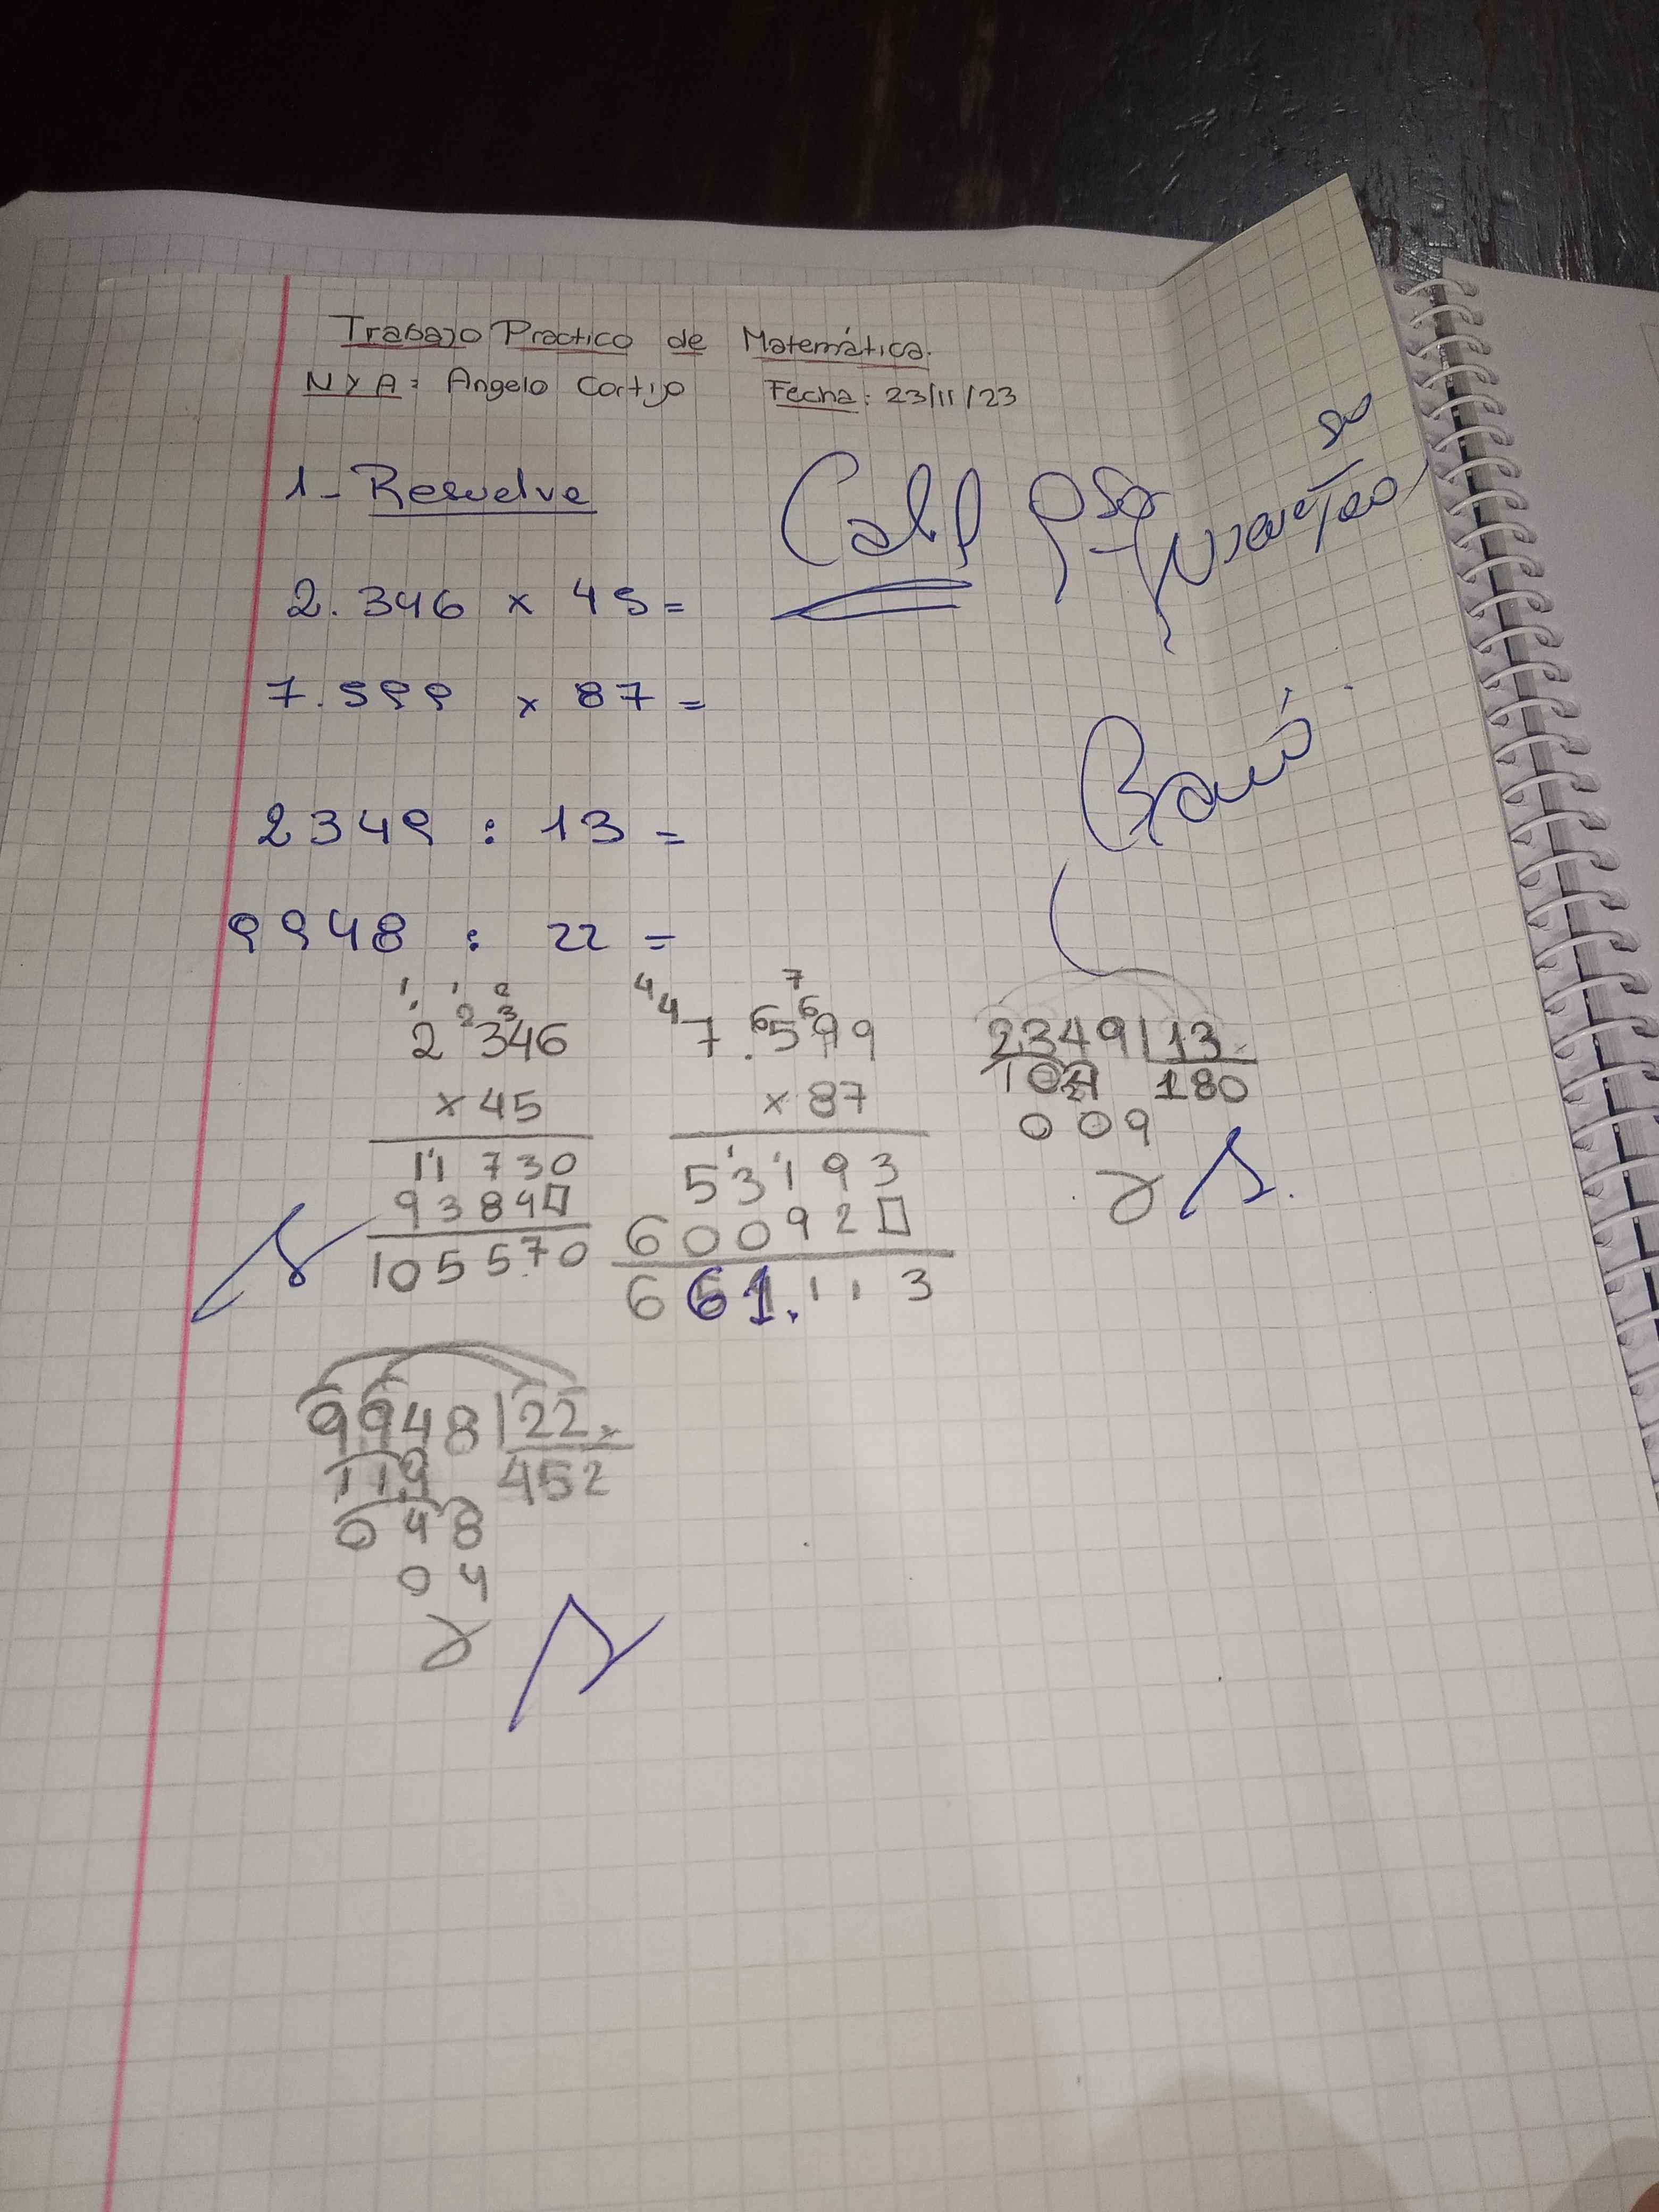 Trabajo Practico de Matemática.
N y A: Angelo Cortijo Fecha: 23/11/23
1- Resuelve
2.346 x 45=
7.599 x 87=
2349 : 13 =
9948 : 22 =
1 1 2
2 3
2346
x 45
11 730
9384□
105570
4 4 7
6 6
7.599
x 87
53193
60092□
661.113
2349|13
104 180
009
9948|22
119 452
048
04